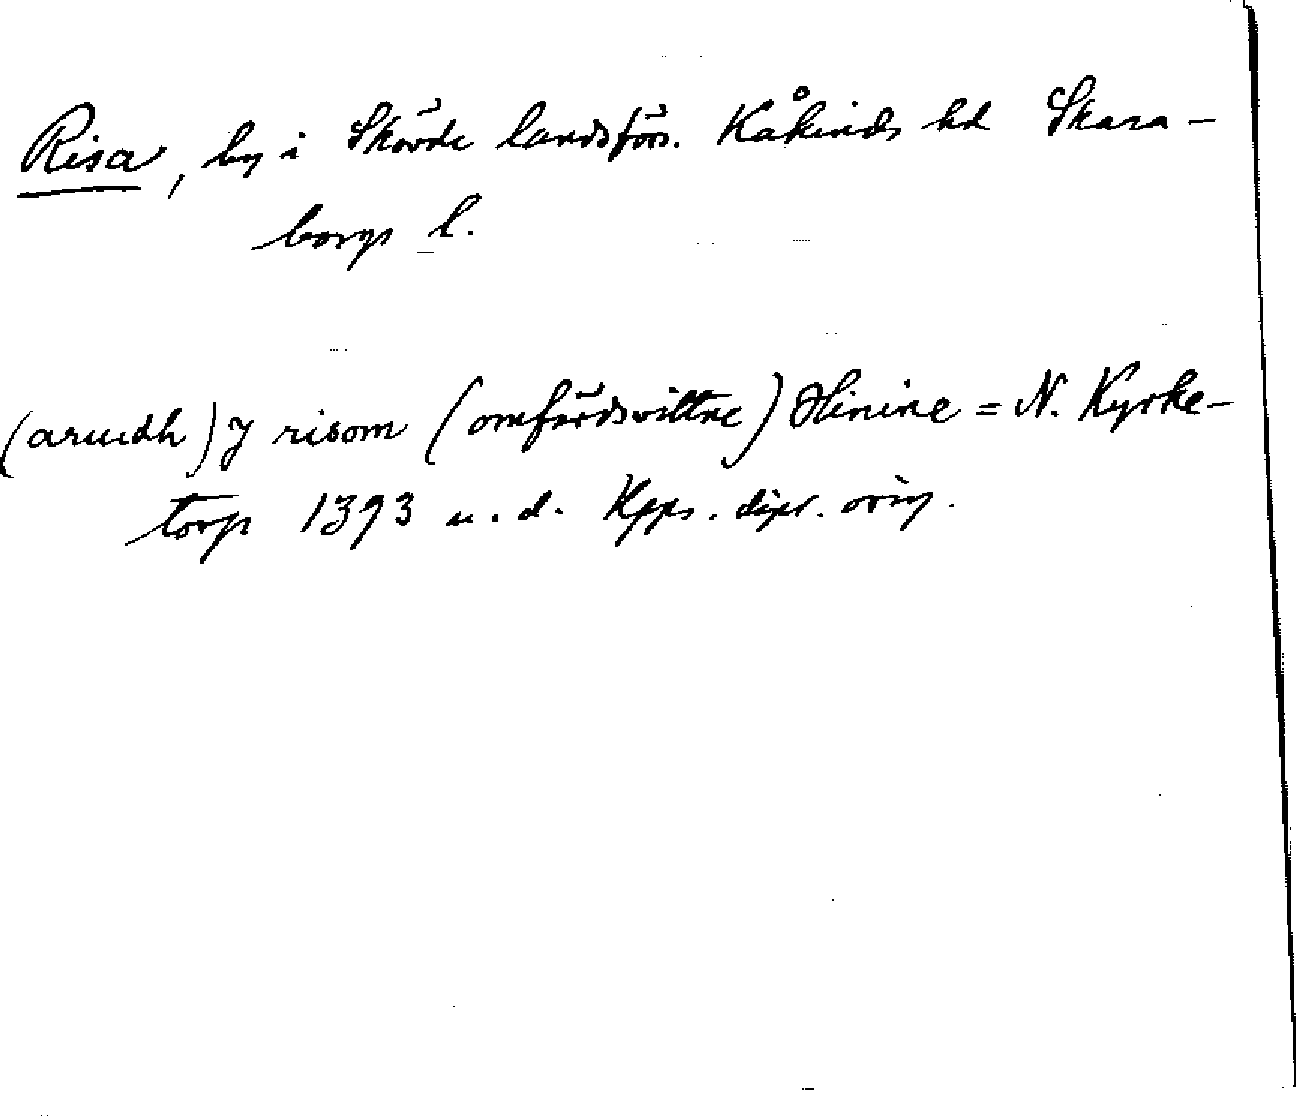 Risa, by i Skövde landsförs. Kåkinds hd Skara-
borgs l.
(aruidh) J risom (omfärdsvittne) Hinine = N. Kyrke-
torp 1393 u. d. Kpps. dipl. orig.